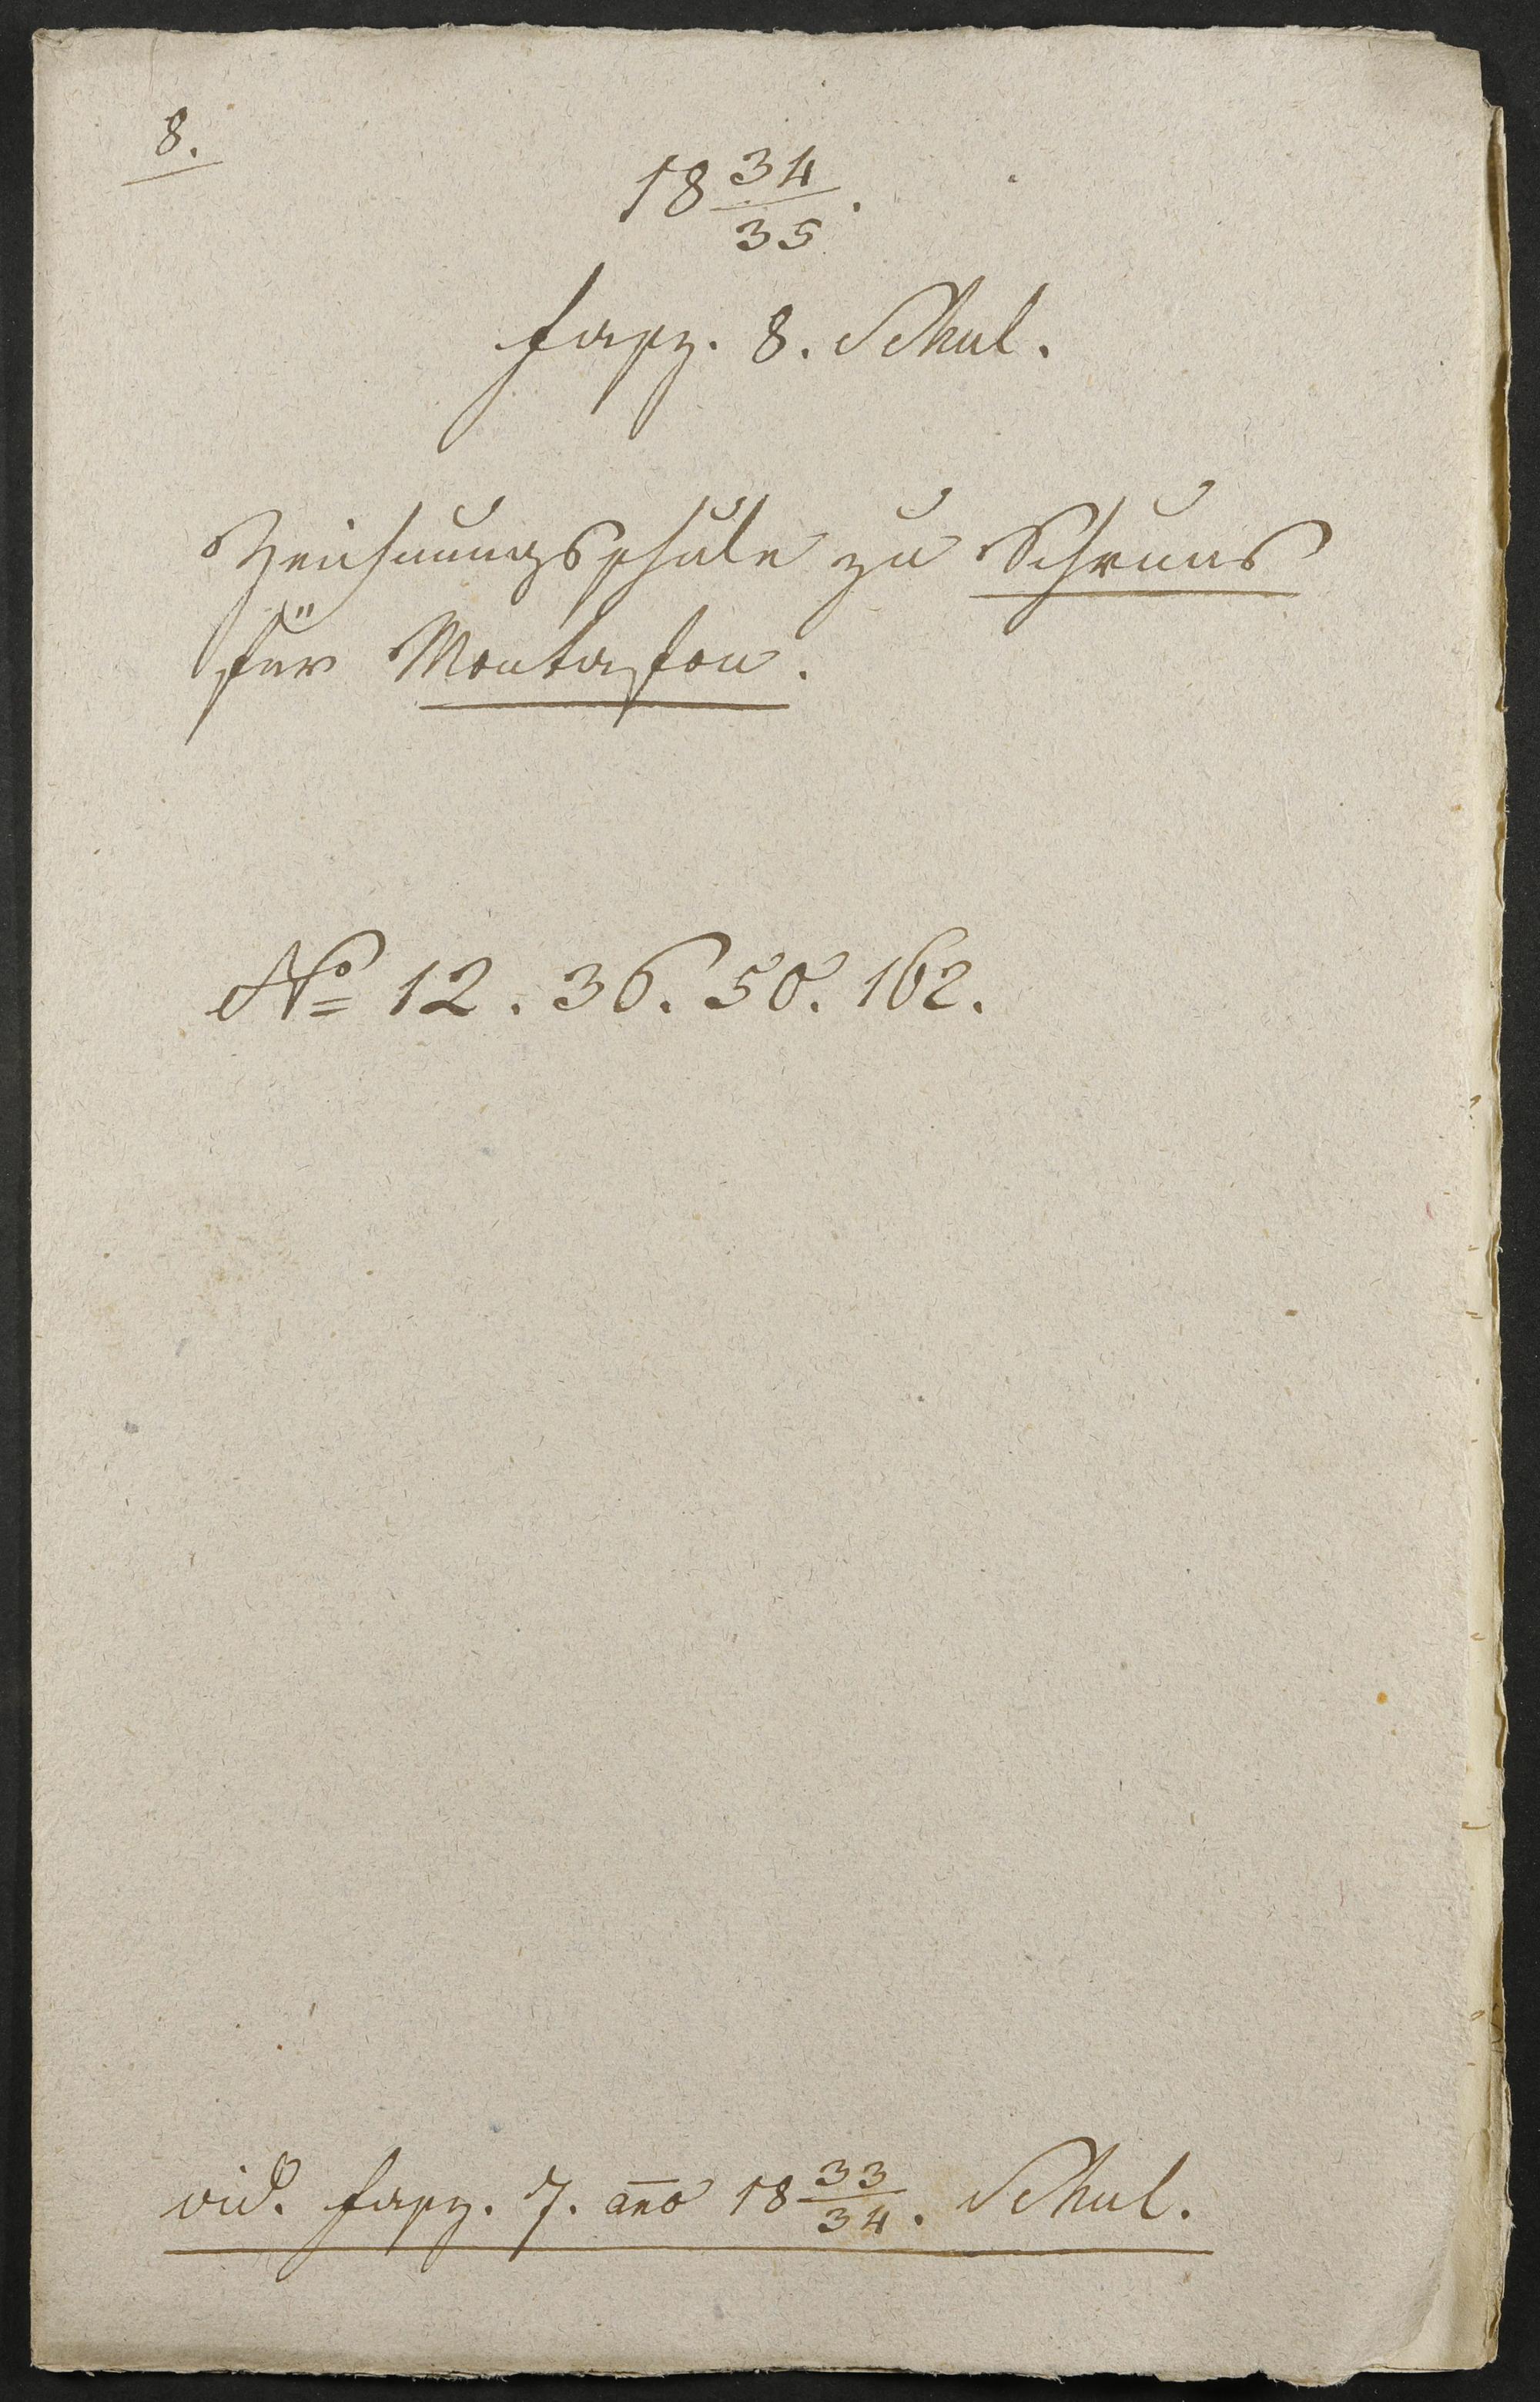 8.
18 34/35.
fasz. 8. Schul.
Zeichnungsschule zu Schruns
für Montafon.
No 12. 36. 50. 162.
vid. fasz. 7. ano 18 33/34. Schul.